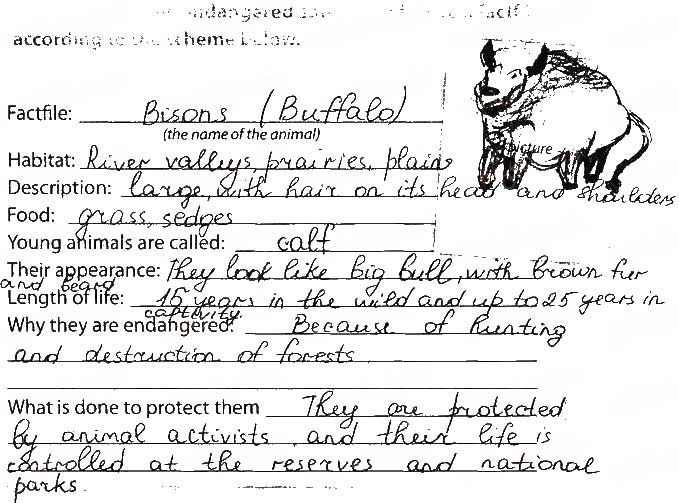 endangered
according to the scheme below.
Factfile: Bisons (Buffalo)
(the name of the animal)
picture
Habitat: River valleys, prairies, plains
Description: large, with hair on its head and shoulders
Food: grass, sedges
Young animals are called: calf
Their appearance: They look like big bull, with brown fur
and beard
Length of life: 15 years in the wild and up to 25 years in
captivity.
Why they are endangered: Because of hunting
and destruction of forests
What is done to protect them They are protected
by animal activists and their life is
controlled at the reserves and national
parks.